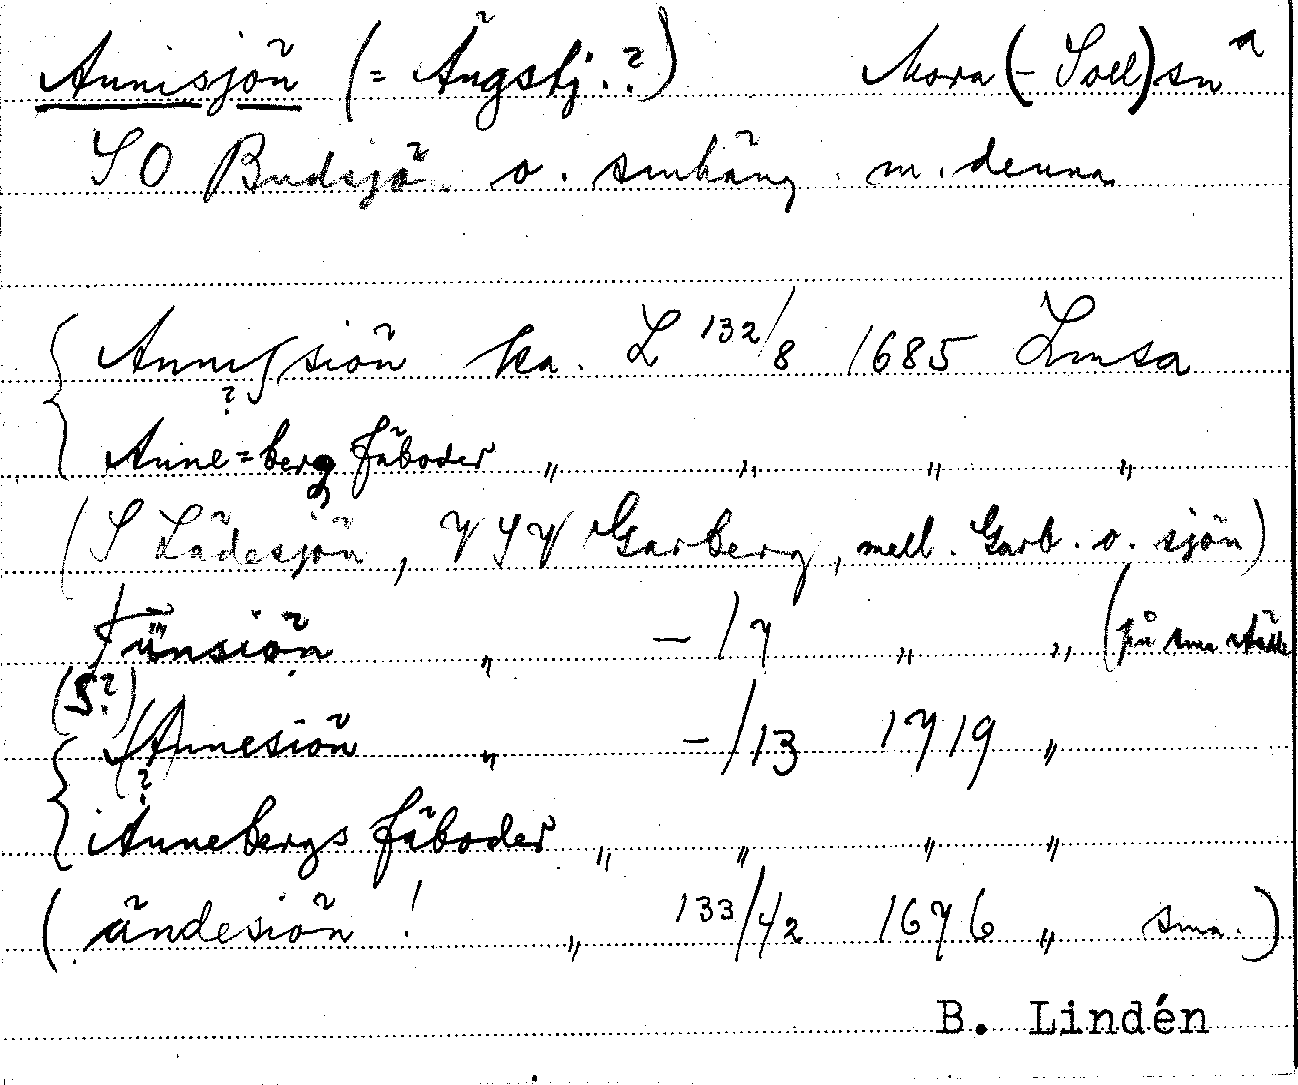 Annisjön (= Ängstj.?) Mora (- Soll) sn a
SO Budsjö. o. smhäng m. denna
Annissiön ka. L 132/8 1685 Lmsa
?
Anne=berg fäboder " " " "
(S Lädesjön, VSV Garberg, mell. Garb. o. sjön)
Tünsiön " - /7 " " (på sma ställe
(S?)
(A)nnesiön " - /13 1719 "
?
Annebergs fäboder " " " "
(ändesiön! " 133/42 1676 " sma.)
B. Lindén